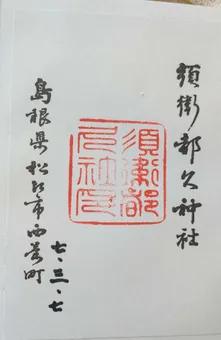 須衛都久神社
須衛都
久社印
七、三、七
島根県松江市西茶町